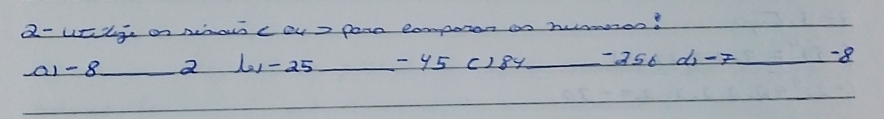 2- utilize os sinais < ou > para comparar os números:
a) -8 ____ 2 b) -25 ____ -45 c) 84 ____ -256 d) -7 ____ -8